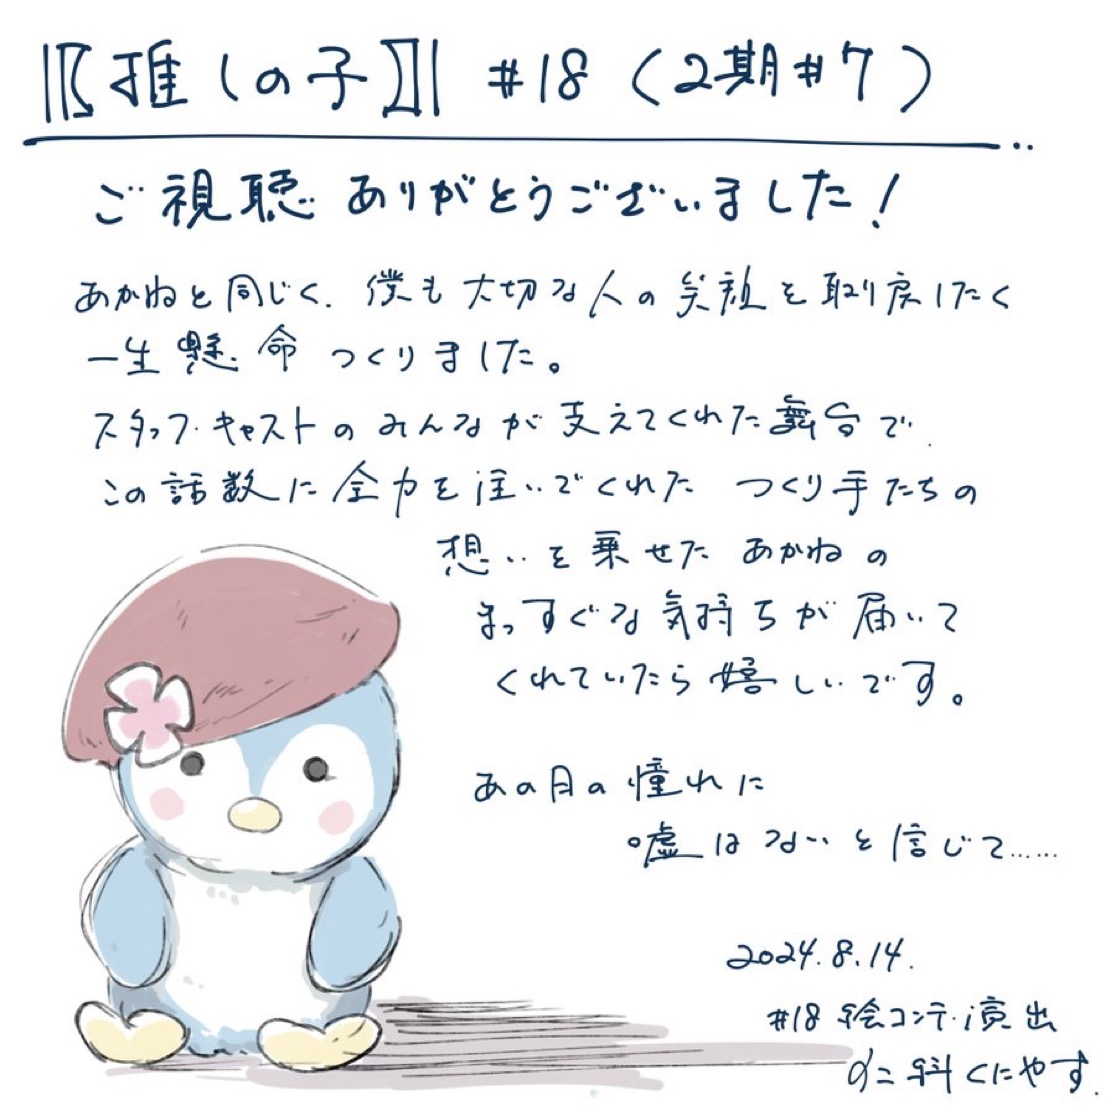 【推しの子】 #18 (2期#7)
ご視聴ありがとうございました!
あかねと同じく、僕も大切な人の笑顔を取り戻したく
一生懸命つくりました。
スタッフ・キャストのみんなが支えてくれた舞台で、
この話数に全力を注いでくれた つくり手たちの
想いを乗せた あかねの
まっすぐな気持ちが届いて
くれていたら嬉しいです。
あの日の憧れに
嘘はないと信じて……
2024.8.14.
#18 絵コンテ・演出
仁科くにやす.